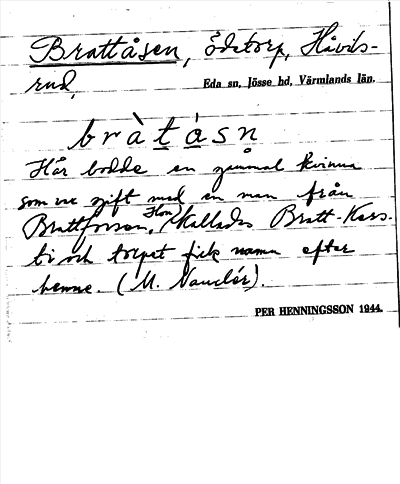 Brattåsen, ödetorp, Håvils-
rud,
Eda sn, Jösse hd, Värmlands län.
bràt̲á̲sn̥
Här bodde en gammal kvinna
som var gift med en man från
Brattforsen, Hon kallades Bratt-Kers-
ti och torpet fick namn efter
henne. (M. Nauclér).
PER HENNINGSSON 1944.